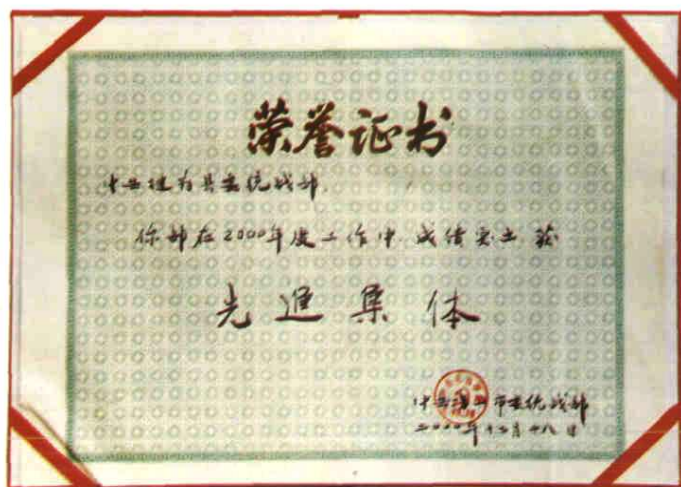 荣誉证书
中共犍为县委统战部:
你部在2000年度工作中,成绩突出,获
先進集体
中共乐山市委统战部
二000年十二月十八日